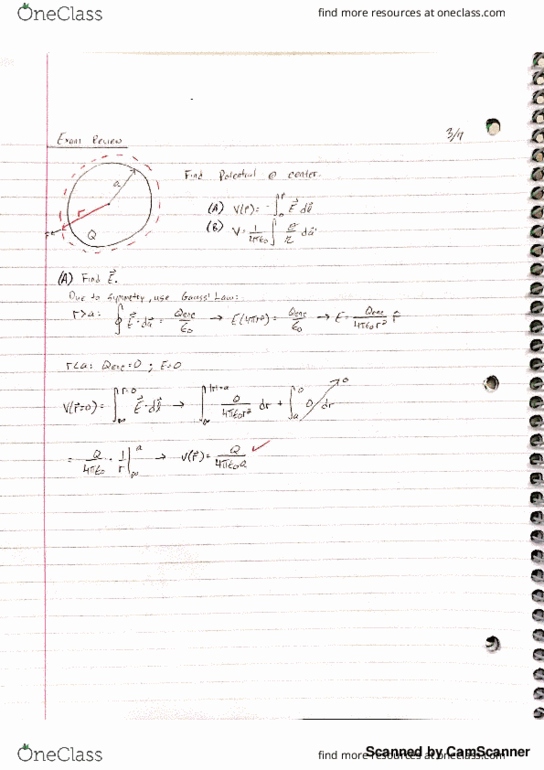 OneClass
find more resources at oneclass.com
Exam Review
3/9
a
r
Q
Find Potential @ center.
(A) V(r) = -∫ E⃗ dl⃗
(B) V = 1/4πε₀ ∫ σ/r da'
(A) Find E⃗.
Due to Symmetry, use Gauss' Law:
r>a: ∮ E⃗·da⃗ = Qenc/ε₀ → E(4πr²) = Qenc/ε₀ → E = Qenc/4πε₀r² r̂
r<a: Qenc=0 ; E=0
V(r⃗=0) = ∫∞^r=0 E⃗·dl⃗ → ∫∞^|r|=a Q/4πε₀r² dr + ∫a^0 0 dr → 0
= Q/4πε₀ · 1/r |∞^a → V(r⃗) = Q/4πε₀a ✓
OneClass
find more resources at oneclass.com
Scanned by CamScanner